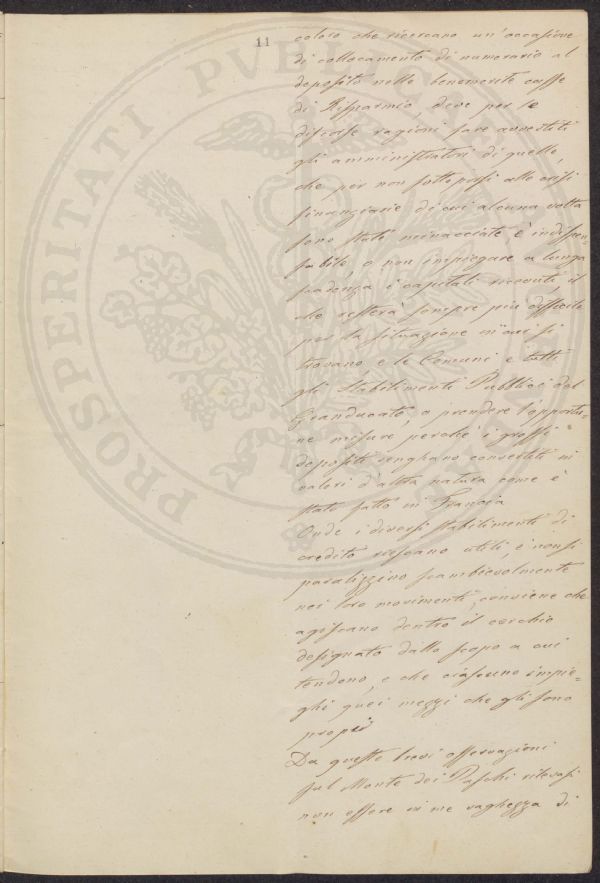 11
coloro che ricercano un'occasione
di collocamento di numerario al
deposito nelle benemerite casse
di Risparmio, deve per le
discorse ragioni fare avvertiti
gli amministratori di quelle,
che per non sottoporsi alle crisi
finanziarie di cui alcuna volta
sono state minacciate è indispen=
sabile, o non impiegare a lunga
scadenza i capitali ricevuti, il
che resterà sempre più difficile
per la situazione in cui si
trovano e le Comuni e tutti
gli Stabilimenti Pubblici del
Granducato, o prendere l'opportu=
ne misure perché i grossi
depositi venghano convertiti in
valori d'altra natura come è
stato fatto in Francia
Onde i diversi stabilimenti di
credito riescano utili, e non si
paralizzino scambievolmente
nei loro movimenti, conviene che
agiscano dentro il cerchio
designato dallo scopo a cui
tendono, e che ciascuno impie=
ghi quei mezzi che gli sono
propri
Da queste brevi osservazioni
sul Monte dei Paschi rilevasi
non essere in me vaghezza di
PROSPERITATI PVBLICAE